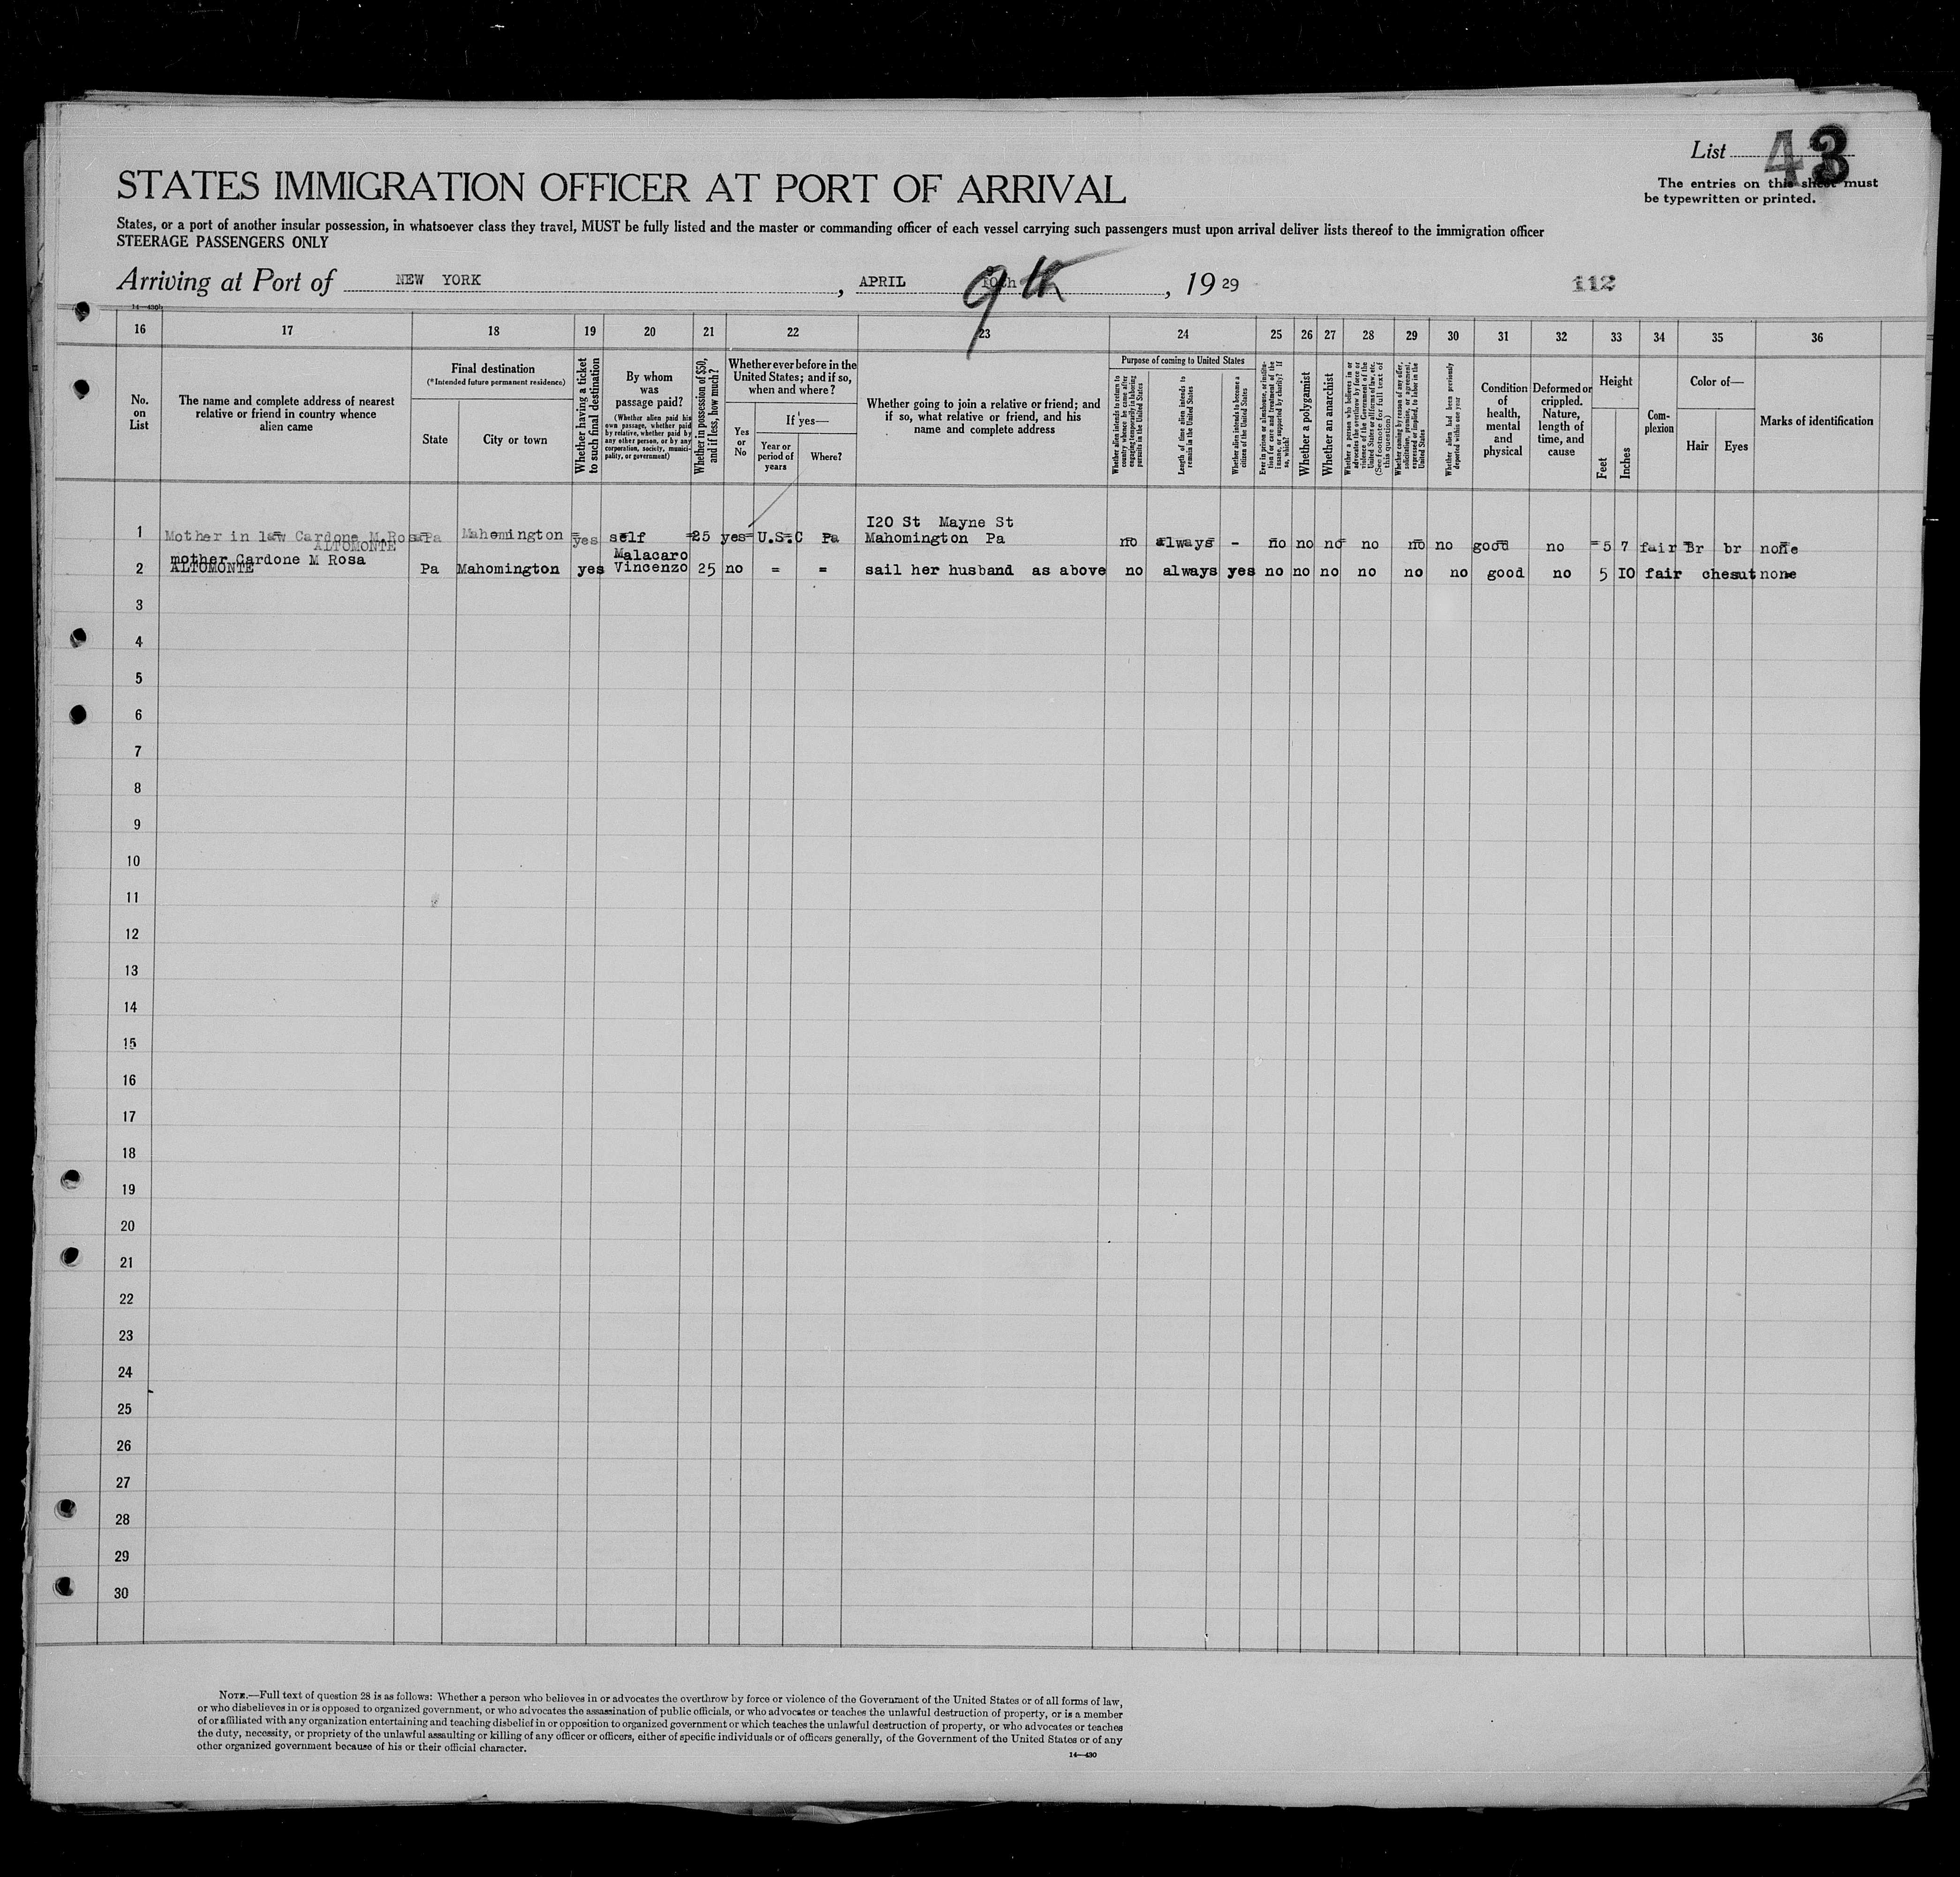 List 43
The entries on this sheet must
be typewritten or printed.
STATES IMMIGRATION OFFICER AT PORT OF ARRIVAL
States, or a port of another insular possession, in whatsoever class they travel, MUST be fully listed and the master or commanding officer of each vessel carrying such passengers must upon arrival deliver lists thereof to the immigration officer
STEERAGE PASSENGERS ONLY
Arriving at Port of NEW YORK, APRIL 10th 9th, 1929
112
14—430b
16 17 18 19 20 21 22 23 24 25 26 27 28 29 30 31 32 33 34 35 36
No. on List
The name and complete address of nearest relative or friend in country whence alien came
Final destination
(*Intended future permanent residence)
State
City or town
Whether having a ticket to such final destination
By whom was passage paid?
(Whether alien paid his own passage, whether paid by relative, whether paid by any other person, or by any corporation, society, municipality, or government)
Whether in possession of $50, and if less, how much?
Whether ever before in the United States; and if so, when and where?
Yes or No
If yes—
Year or period of years
Where?
Whether going to join a relative or friend; and if so, what relative or friend, and his name and complete address
Purpose of coming to United States
Whether alien intends to return to country whence he came after engaging temporarily in laboring pursuits in the United States
Length of time alien intends to remain in the United States
Whether alien intends to become a citizen of the United States
Ever in prison or almshouse, or institution for care and treatment of the insane, or supported by charity? If so, which?
Whether a polygamist
Whether an anarchist
Whether a person who believes in or advocates the overthrow by force or violence of the Government of the United States or all forms of law, etc. (See footnote for full text of this question)
Whether coming by reason of any offer, solicitation, promise, or agreement, expressed or implied, to labor in the United States
Whether alien had been previously deported within one year
Condition of health, mental and physical
Deformed or crippled. Nature, length of time, and cause
Height
Feet
Inches
Complexion
Color of—
Hair
Eyes
Marks of identification
I20 St Mayne St
1 Mother in law Cardone M.Rosa Pa Mahomington yes self 25 yes U.S.C Pa Mahomington Pa no always - no no no no no no good no 5 7 fair Br br none
ALTOMONTE
mother Cardone M Rosa Malacaro
2 ALTOMONTE Pa Mahomington yes Vincenzo 25 no = = sail her husband as above no always yes no no no no no no good no 5 IO fair chesut none
3
4
5
6
7
8
9
10
11
12
13
14
15
16
17
18
19
20
21
22
23
24
25
26
27
28
29
30
NOTE.—Full text of question 28 is as follows: Whether a person who believes in or advocates the overthrow by force or violence of the Government of the United States or of all forms of law,
or who disbelieves in or is opposed to organized government, or who advocates the assassination of public officials, or who advocates or teaches the unlawful destruction of property, or is a member
of or affiliated with any organization entertaining and teaching disbelief in or opposition to organized government or which teaches the unlawful destruction of property, or who advocates or teaches
the duty, necessity, or propriety of the unlawful assaulting or killing of any officer or officers, either of specific individuals or of officers generally, of the Government of the United States or of any
other organized government because of his or their official character.
14—430